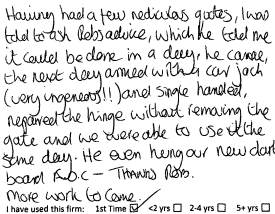 Having had a few rediculas quotes, I was
told to ask Robs advice, which he told me
it could be done in a day, he came,
the next day armed with a car jack
(very ingenous!!) and single handed,
repaired the hinge without removing the
gate and we were able to use it the
same day. He even hung our new dart
board F.O.C - Thanks Rob.
more work to come.
I have used this firm: 1st Time <2 yrs 2-4 yrs 5+ yrs